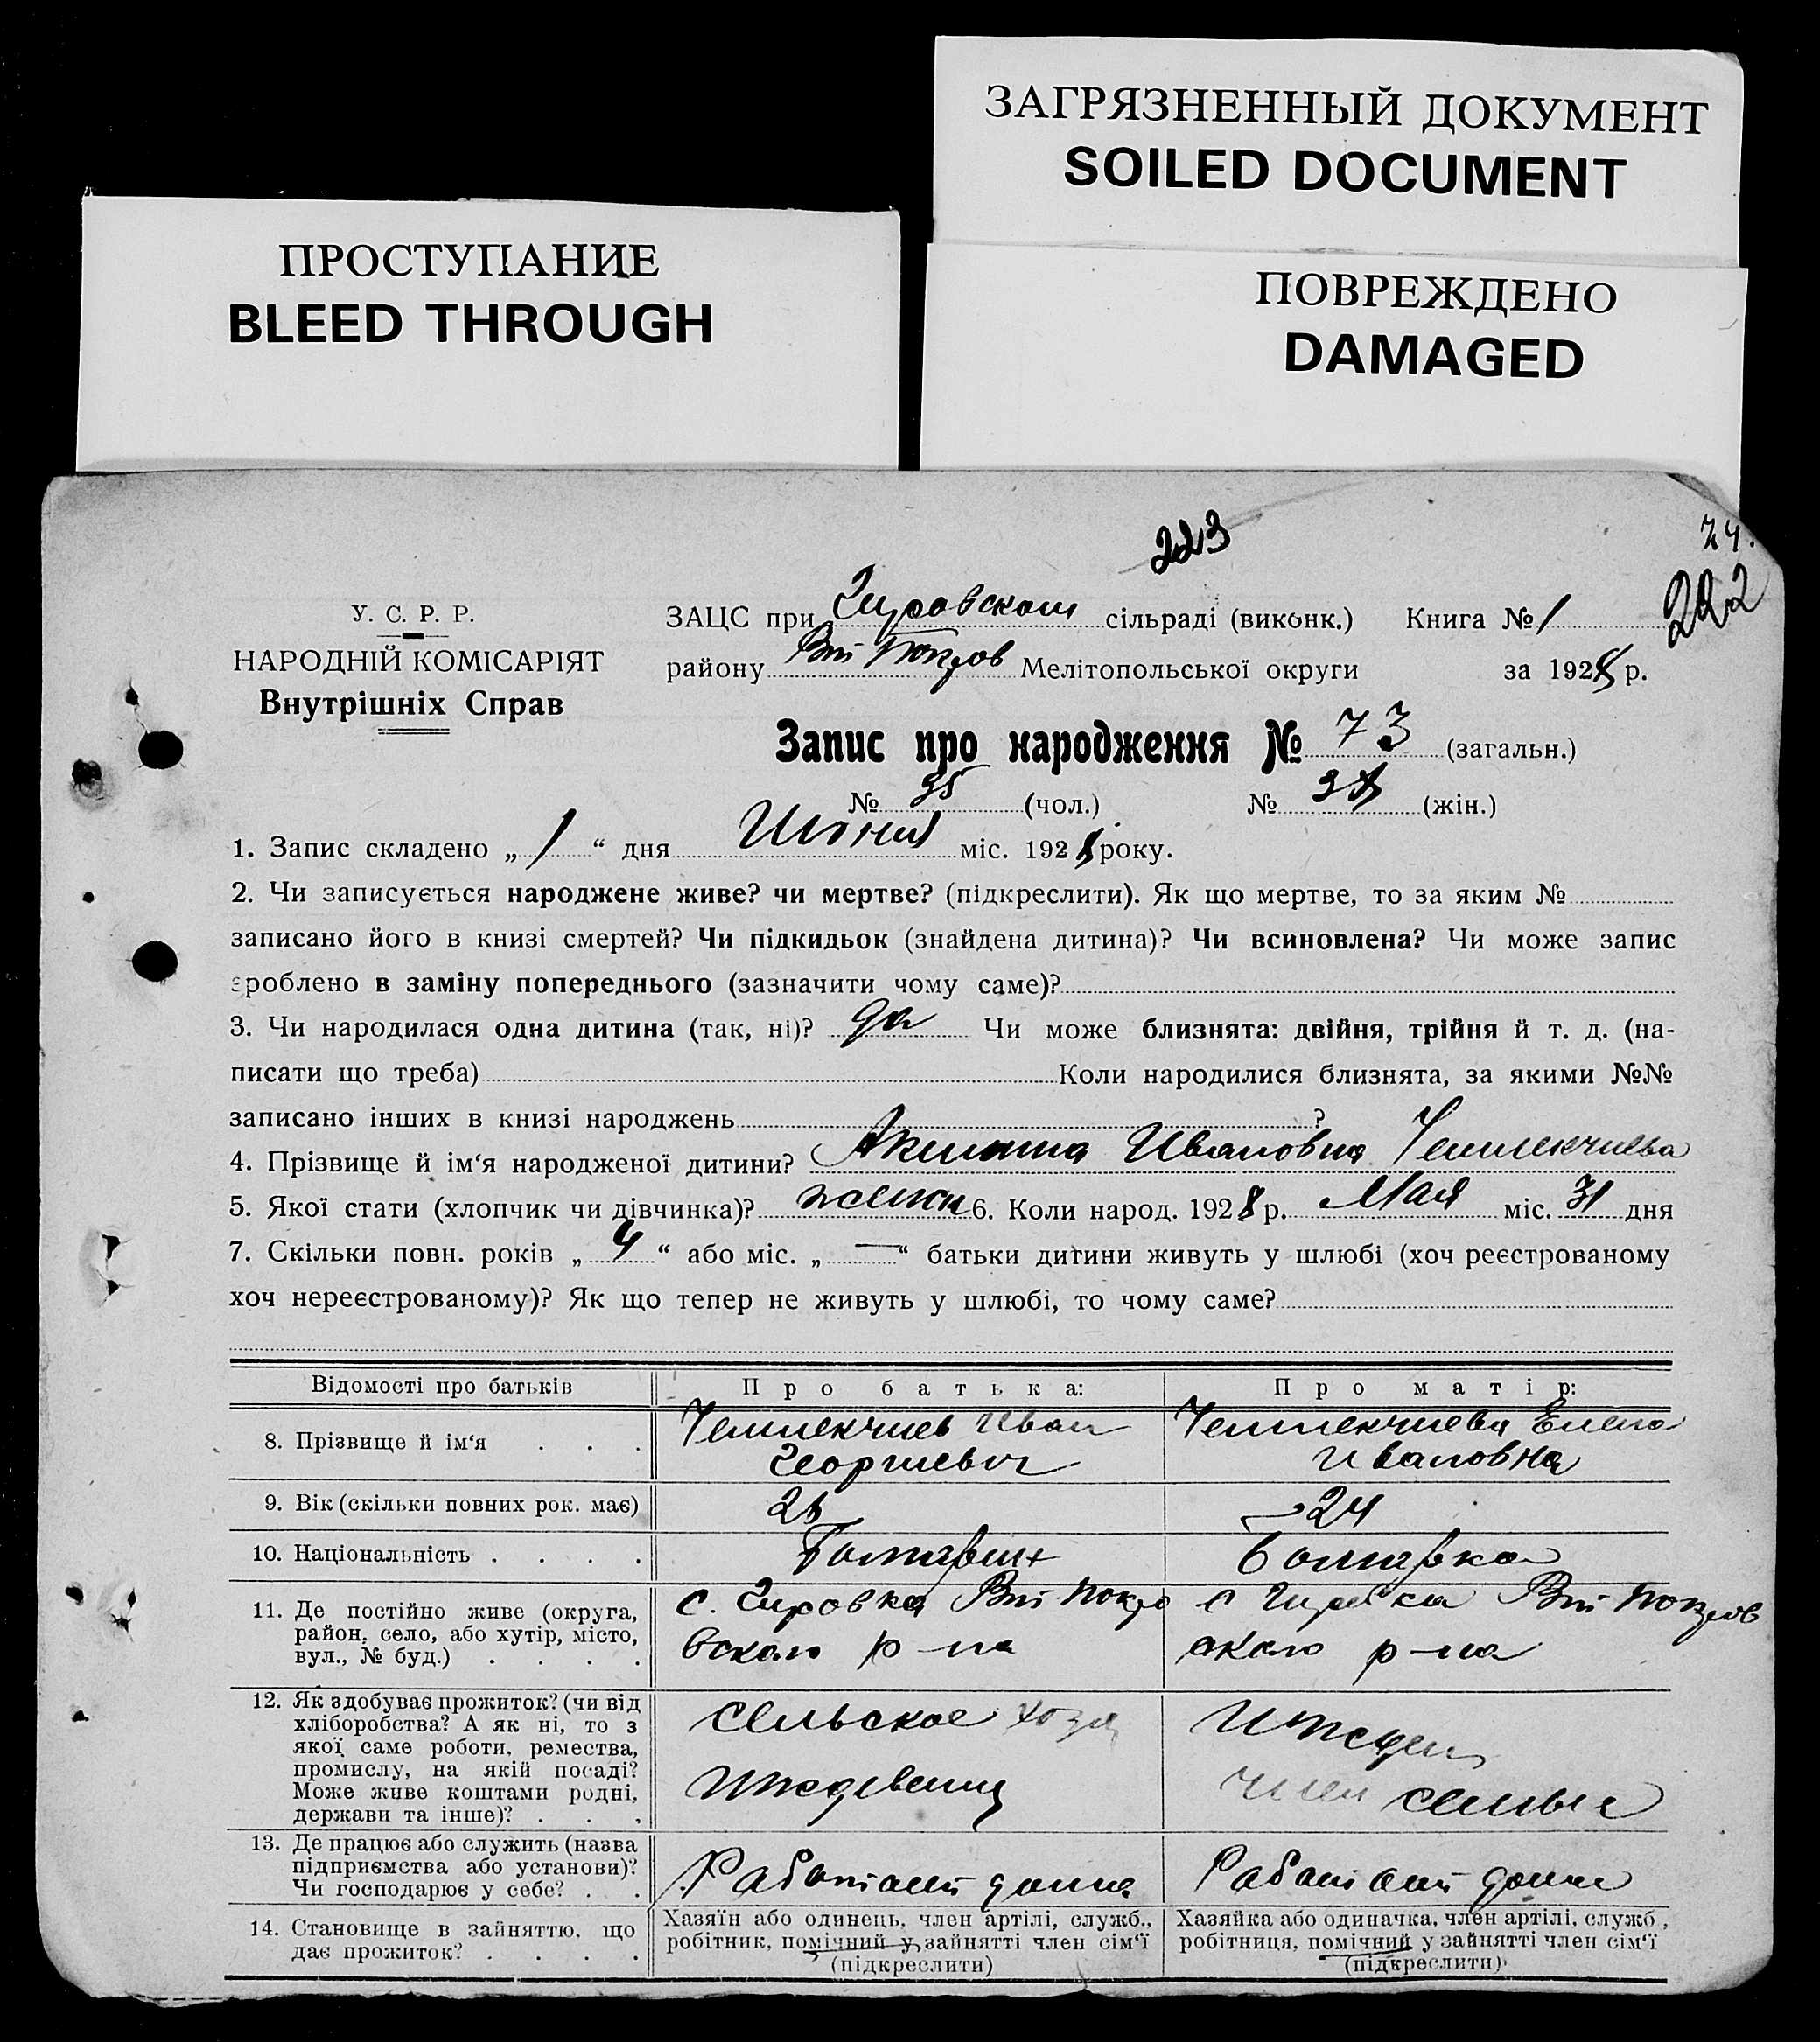 ЗАГРЯЗНЕННЫЙ ДОКУМЕНТ
SOILED DOCUMENT
ПРОСТУПАНИЕ
BLEED THROUGH
ПОВРЕЖДЕНО
DAMAGED
223
24.
222
У. С. Р. Р.
НАРОДНІЙ КОМІСАРІЯТ
Внутрішніх Справ
ЗАЦС при Гировском сільраді (виконк.) Книга № 1
району Вт Покров Мелітопольської округи за 1928 р.
Запис про народження № 73 (загальн.)
№ 35 (чол.) № 38 (жін.)
1. Запис складено „ 1 “ дня Июня міс. 1928 року.
2. Чи записується народжене живе? чи мертве? (підкреслити). Як що мертве, то за яким №
записано його в книзі смертей? Чи підкидьок (знайдена дитина)? Чи всиновлена? Чи може запис
зроблено в заміну попереднього (зазначити чому саме)?
3. Чи народилася одна дитина (так, ні)? да Чи може близнята: двійня, трійня й т. д. (на-
писати що треба) Коли народилися близнята, за якими №№
записано інших в книзі народжень ?
4. Прізвище й ім‘я народженої дитини? Акилина Ивановна Чемлекчиева
5. Якої стати (хлопчик чи дівчинка)? женск 6. Коли народ. 1928 р. Мая міс. 31 дня
7. Скільки повн. років „ 4 “ або міс. „ — “ батьки дитини живуть у шлюбі (хоч реєстрованому
хоч нереєстрованому)? Як що тепер не живуть у шлюбі, то чому саме?
Відомості про батьків Про батька: Про матір:
8. Прізвище й ім‘я . . . Чемлекчиев Иван Георгиевич Чемлекчиева Елена Ивановна
9. Вік (скільки повних рок. має) 24
10. Національність . . . . Болгарин болгарка
11. Де постійно живе (округа, район, село, або хутір, місто, вул., № буд.) . . . . с. Гировка Вт Покро вского р-на с Гировка Вт Покров ского р-на
12. Як здобуває прожиток? (чи від хліборобства? А як ні, то з якої саме роботи, ремества, промислу, на якій посаді? Може живе коштами родні, держави та інше)? . . . сельское хозя иждевенц иждев член семьи
13. Де працює або служить (назва підприємства або установи)? Чи господарює у себе? . . Работает дома Работает дома
14. Становище в зайняттю, що дає прожиток? . . . . Хазяїн або одинець, член артілі, служб., робітник, помічний у зайнятті член сім‘ї (підкреслити) Хазяйка або одиначка, член артілі, служб., робітниця, помічний у зайнятті член сім‘ї (підкреслити)